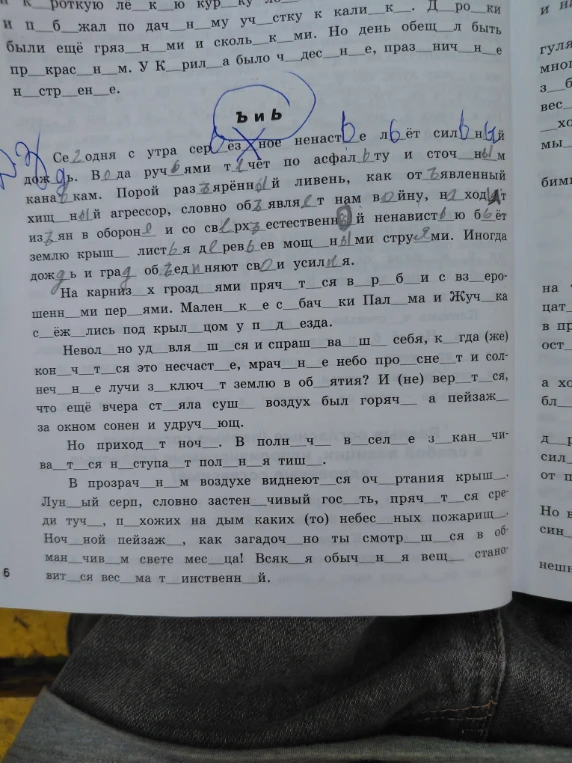 к__роткую лё__к__ю кур__ку
и п__б__жал по дач__н__му уч__стку к кали__к__. Д__ро__ки
были ещё гряз__н__ми и сколь__к__ми. Но день обещ__л быть
пр__крас__н__м. У К__рил__а было ч__дес__н__е, праз__нич__н__е
н__стр__ен__е.
Ъ и Ь
Се2одня с утра серьёз__ное ненастье льёт сильный
дождь. Вода ручьями течёт по асфальту и сточ__ным
канавкам. Порой разъярённый ливень, как отъявленный
хищ__ный агрессор, словно объявляет нам войну, находит
изъян в обороне и со сверхъестественной ненавистью бьёт
землю крыш__ листья деревьев мощ__ными струями. Иногда
дождь и град объединяют свои усилия.
На карниз__х грозд__ями пряч__т__ся в__р__б__и с вз__еро-
шенн__ми пер__ями. Мален__к__е с__бач__ки Пал__ма и Жуч__ка
с__ёж__лись под крыл__цом у п__д__езда.
Невол__но уд__вля__ш__ся и спраш__ва__ш__ себя, к__гда (же)
кон__ч__т__ся это несчаст__е, мрач__н__е небо про__сне__т и сол-
неч__н__е лучи з__ключ__т землю в об__ятия? И (не) вер__т__ся,
что ещё вчера ст__яла суш__ воздух был горяч__ а пейзаж__
за окном сонен и удруч__ющ.
Но приход__т ноч__. В полн__ч__ в__сел__е з__кан__чи-
ва__т__ся н__ступа__т пол__н__я тиш__.
В прозрач__н__м воздухе виднеют__ся оч__ртания крыш__.
Лун__ый серп, словно застен__чивый гос__ть, пряч__т__ся сре-
ди туч__, п__хожих на дым каких (то) небес__ных пожарищ__.
Ноч__ной пейзаж__, как загадоч__но ты смотр__ш__ся в об-
ман__чив__м свете мес__ца! Всяк__я обыч__н__я вещ__ стано-
вит__ся вес__ма т__инственн__й.
6